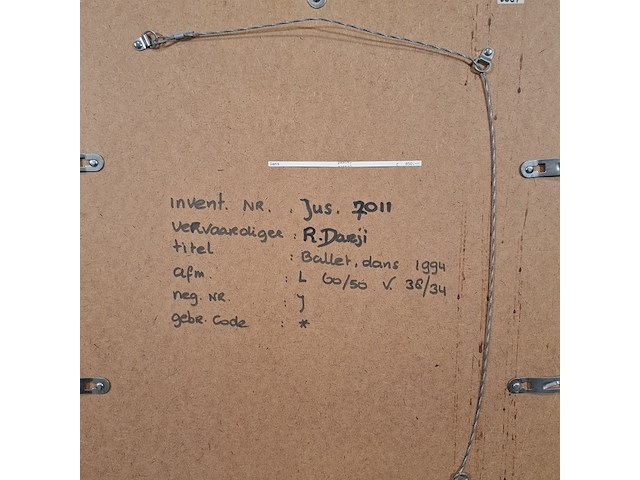 invent. NR. : Jus. 7011
vervaardiger : R. Darji
titel : Ballet, dans 1994
afm. : L 60/50 V. 38/34
neg. NR. : J
gebr. Code : *